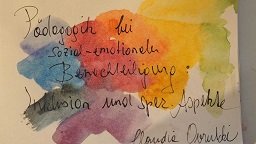 Pädagogik bei
sozial-emotionaler
Benachteiligung:
Inklusion und spez. Aspekte
Claudia